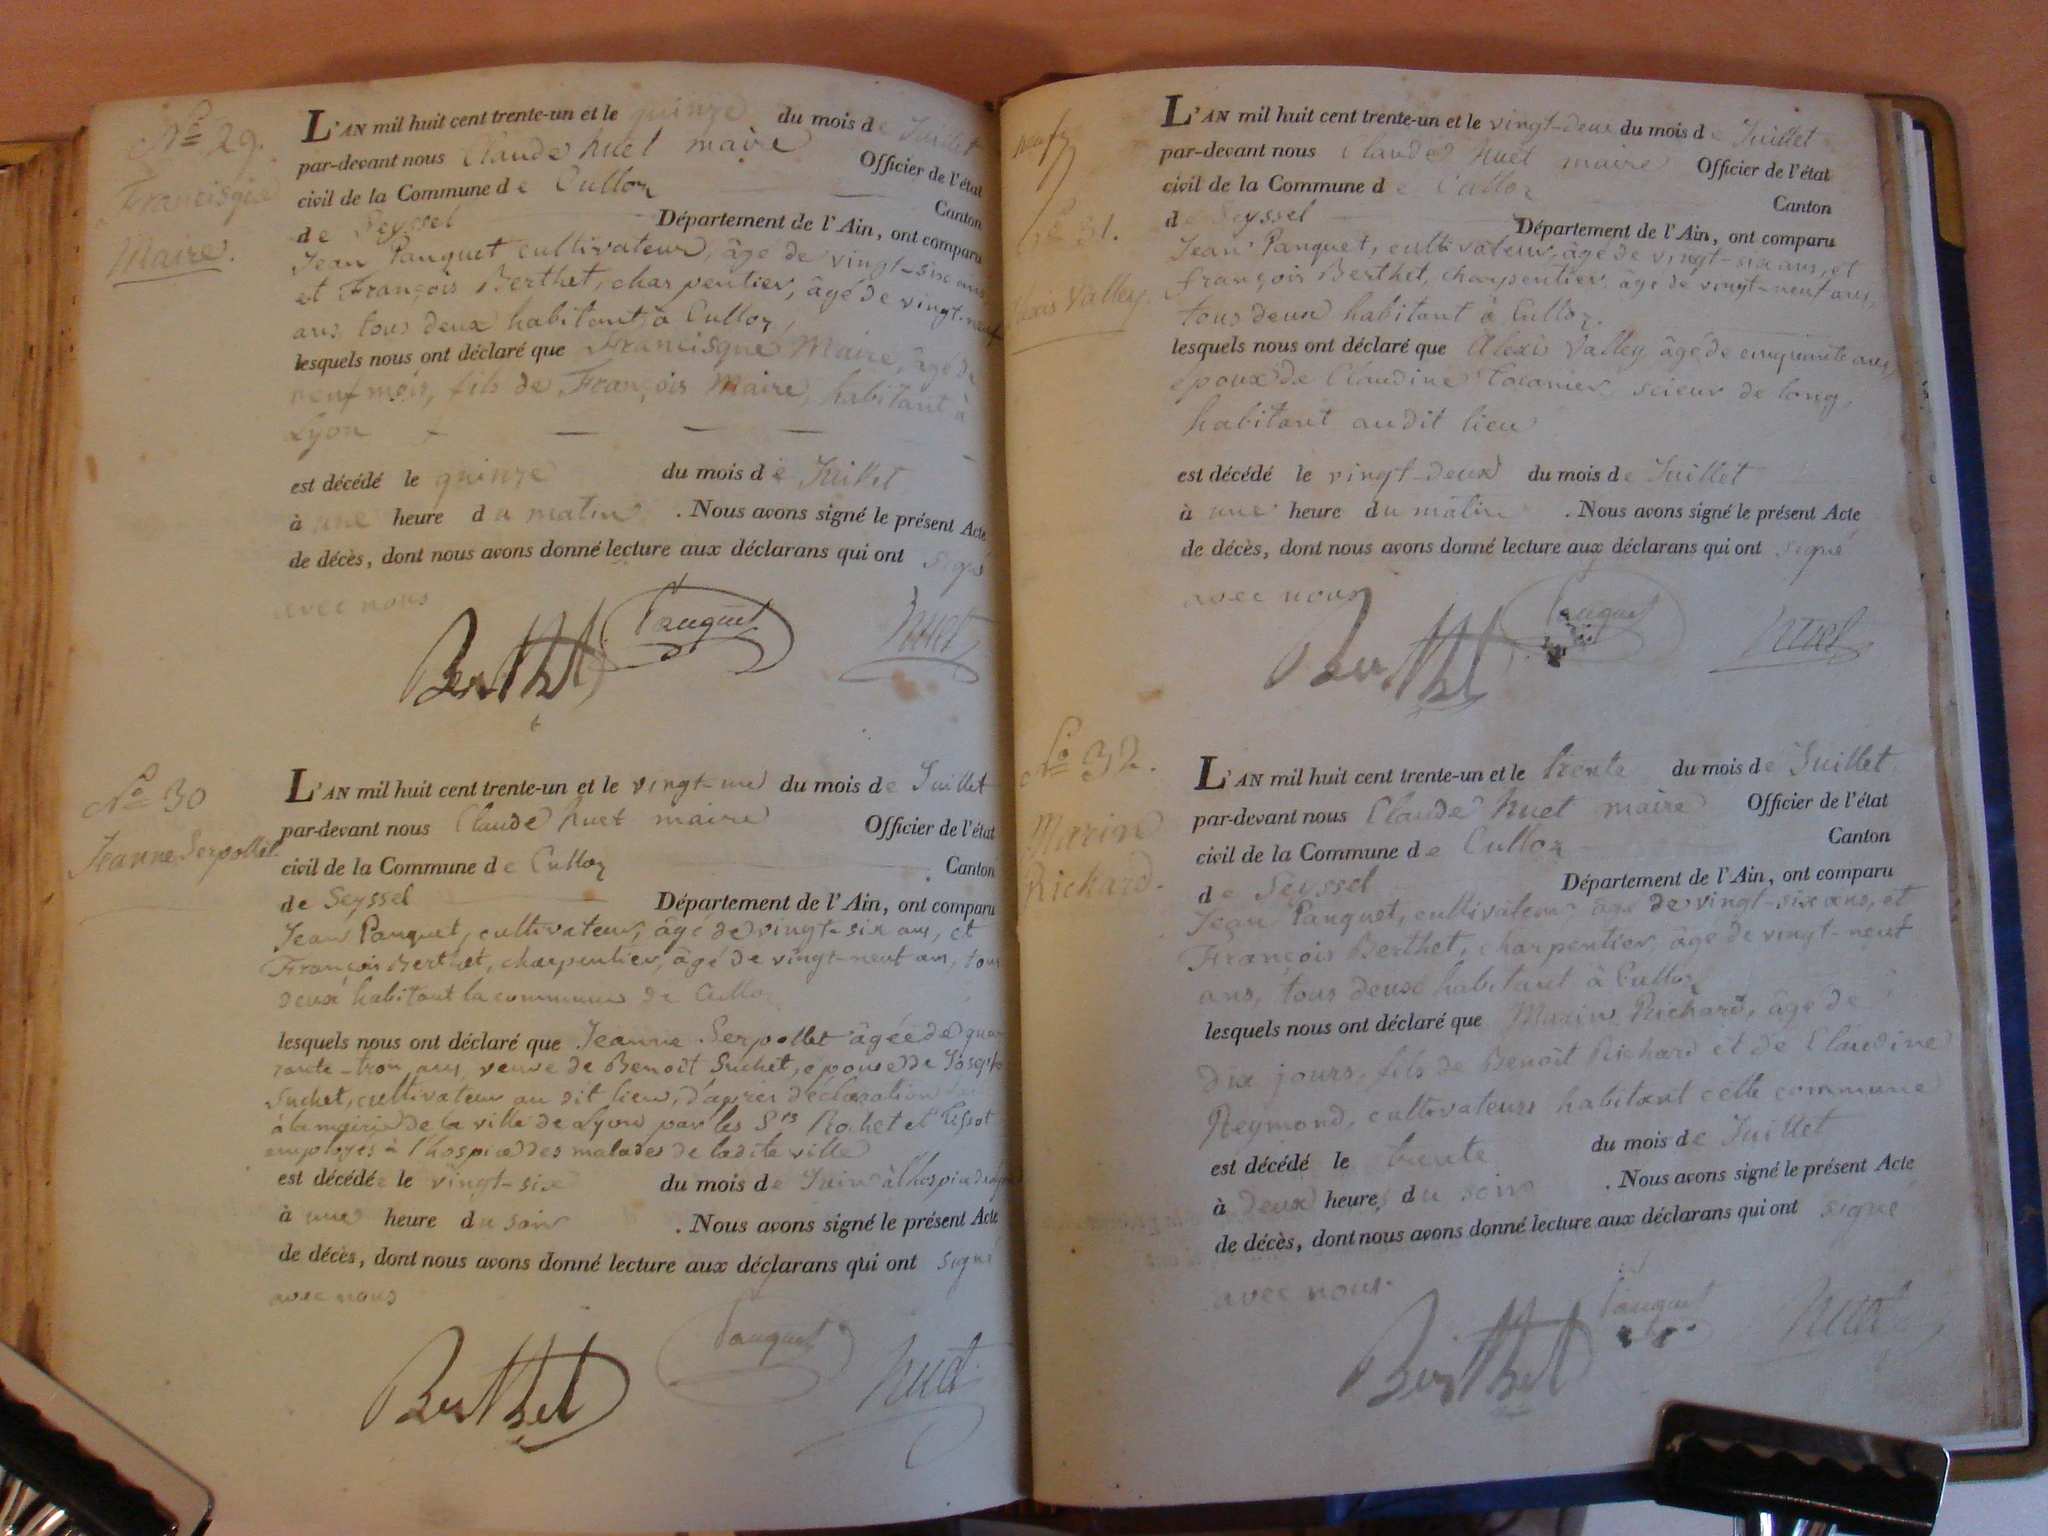 Nº 29.
Francisque
Maire.
L'AN mil huit cent trente-un et le quinze du mois de Juillet
par-devant nous Claude huet maire Officier de l'état
civil de la Commune de Culloz Canton
de Seyssel Département de l'Ain, ont comparu
Jean Pauquet cultivateur, âgé de vingt-six ans
et François Berthet, charpentier, âgé de vingt-neuf
ans, tous deux habitant à Culloz,
lesquels nous ont déclaré que Francisque Maire, âgé de
neuf mois, fils de François Maire, habitant à
Lyon
est décédé le quinze du mois de Juillet
à une heure du matin. Nous avons signé le présent Acte
de décès, dont nous avons donné lecture aux déclarans qui ont signé
avec nous
Berthet Pauquet huet
Nº 30
Jeanne Serpollet
L'AN mil huit cent trente-un et le vingt-un du mois de Juillet
par-devant nous Claude huet maire Officier de l'état
civil de la Commune de Culloz Canton
de Seyssel Département de l'Ain, ont comparu
Jean Pauquet, cultivateur, âgé de vingt-six ans, et
François Berthet, charpentier, âgé de vingt-neuf ans, tous
deux habitant la commune de Culloz
lesquels nous ont déclaré que Jeanne Serpollet âgée de qua-
rante-trois ans, veuve de Benoît Suchet, épouse de Joseph
Suchet, cultivateur au dit lieu, d'après déclaration
à la mairie de la ville de Lyon par les Srs Rochet et Tissot
employés à l'hospice des malades de ladite ville
est décédée le vingt-six du mois de Juin à l'hospice
à une heure du soir. Nous avons signé le présent Acte
de décès, dont nous avons donné lecture aux déclarans qui ont signé
avec nous
Berthet Pauquet huet
neuf
Nº 31.
Alexis Valley.
L'AN mil huit cent trente-un et le vingt-deux du mois de Juillet
par-devant nous Claude huet maire Officier de l'état
civil de la Commune de Culloz Canton
de Seyssel Département de l'Ain, ont comparu
Jean Pauquet, cultivateur, âgé de vingt-six ans, et
françois Berthet, charpentier, âgé de vingt-neuf ans,
tous deux habitant à Culloz.
lesquels nous ont déclaré que Alexis Valley, âgé de cinquante ans,
époux de Claudine scieur de long,
habitant audit lieu
est décédé le vingt-deux du mois de Juillet
à une heure du matin. Nous avons signé le présent Acte
de décès, dont nous avons donné lecture aux déclarans qui ont signé
avec nous
Berthet Pauquet huet
Nº 32.
Marin
Richard.
L'AN mil huit cent trente-un et le trente du mois de Juillet
par-devant nous Claude huet maire Officier de l'état
civil de la Commune de Culloz Canton
de Seyssel Département de l'Ain, ont comparu
Jean Pauquet, cultivateur âgé de vingt-six ans, et
François Berthet, charpentier, âgé de vingt-neuf
ans, tous deux habitant à Culloz
lesquels nous ont déclaré que Marin Richard, âgé de
dix jours, fils de Benoît Richard et de Claudine
Reymond, cultivateurs habitant cette commune
est décédé le trente du mois de Juillet
à deux heures du soir. Nous avons signé le présent Acte
de décès, dont nous avons donné lecture aux déclarans qui ont signé
avec nous.
Berthet Pauquet huet